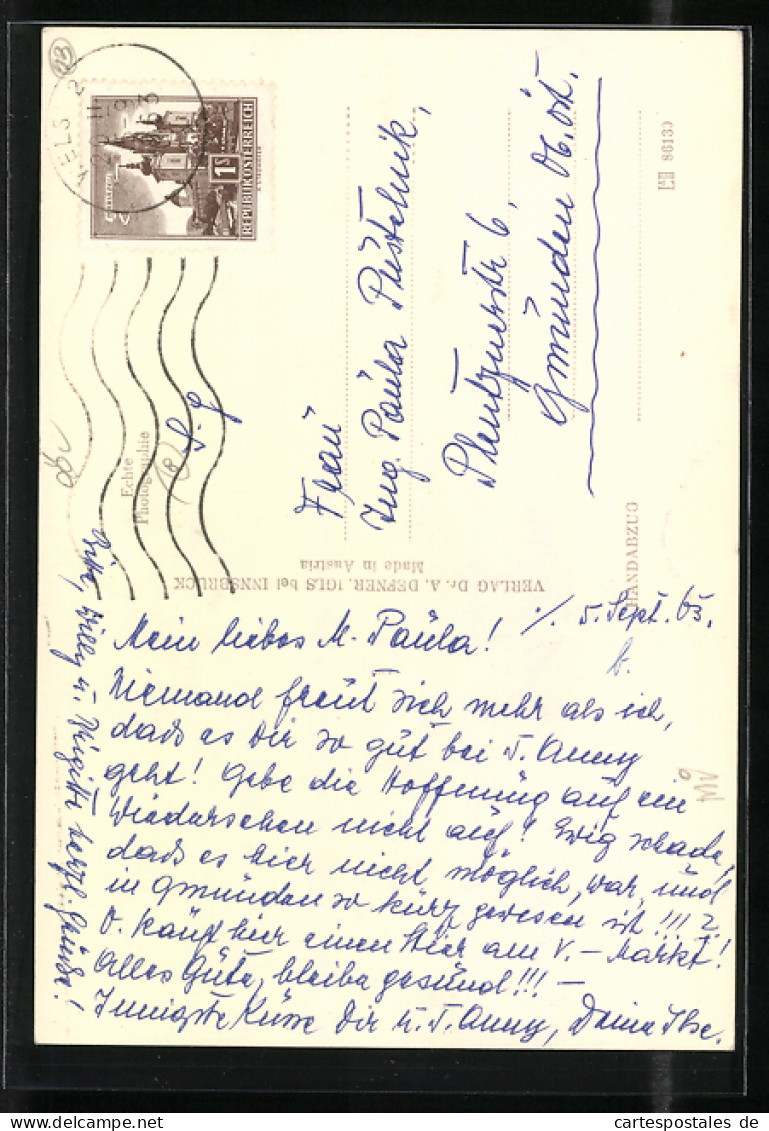 WELS 2
REPUBLIK ÖSTERREICH
1 S
Echte
Photographie
VERLAG Dr. A. DEFNER, IGLS bei INNSBRUCK
Made in Austria
HANDABZUG
86130
Frau
Ing. Paula Pustelnik,
6,
Gmünden Ob. öst.
5. Sept. 63.
Mein liebes M. Paula!
Niemand freut sich mehr als ich,
dass es Dir so gut bei T. Anny
geht! Gebe die Hoffnung auf ein
Wiedersehen nicht auf! Ewig schade,
dass es hier nicht möglich, war, und
in Gmünden so kurz gewesen ist!!!
O. kauft hier einen Stier am V. - Markt!
Alles Gute, bleibe gesund!!! -
Innigste Küsse Dir u. T. Anny, Deine Ilse.
Willy u. Brigitte herzl. Grüsse!
cartespostales de